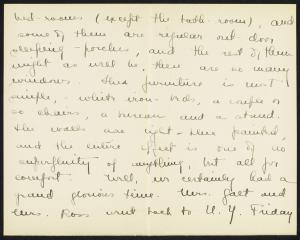 bed-rooms (except the bath-room), and
some of them are regular out-door
sleeping-porches, and the rest of them
might as well be, there are so many
windows. The furniture is most
simple, white iron-beds, a couple or
so chairs, a bureau and a stand.
The walls are light-blue painted,
and the entire effect is one of no
superfluity of anything, but all for
comfort. Well, we certainly had a
grand glorious time. Mrs. Galt and
Mrs. Ross went back to N. Y. Friday